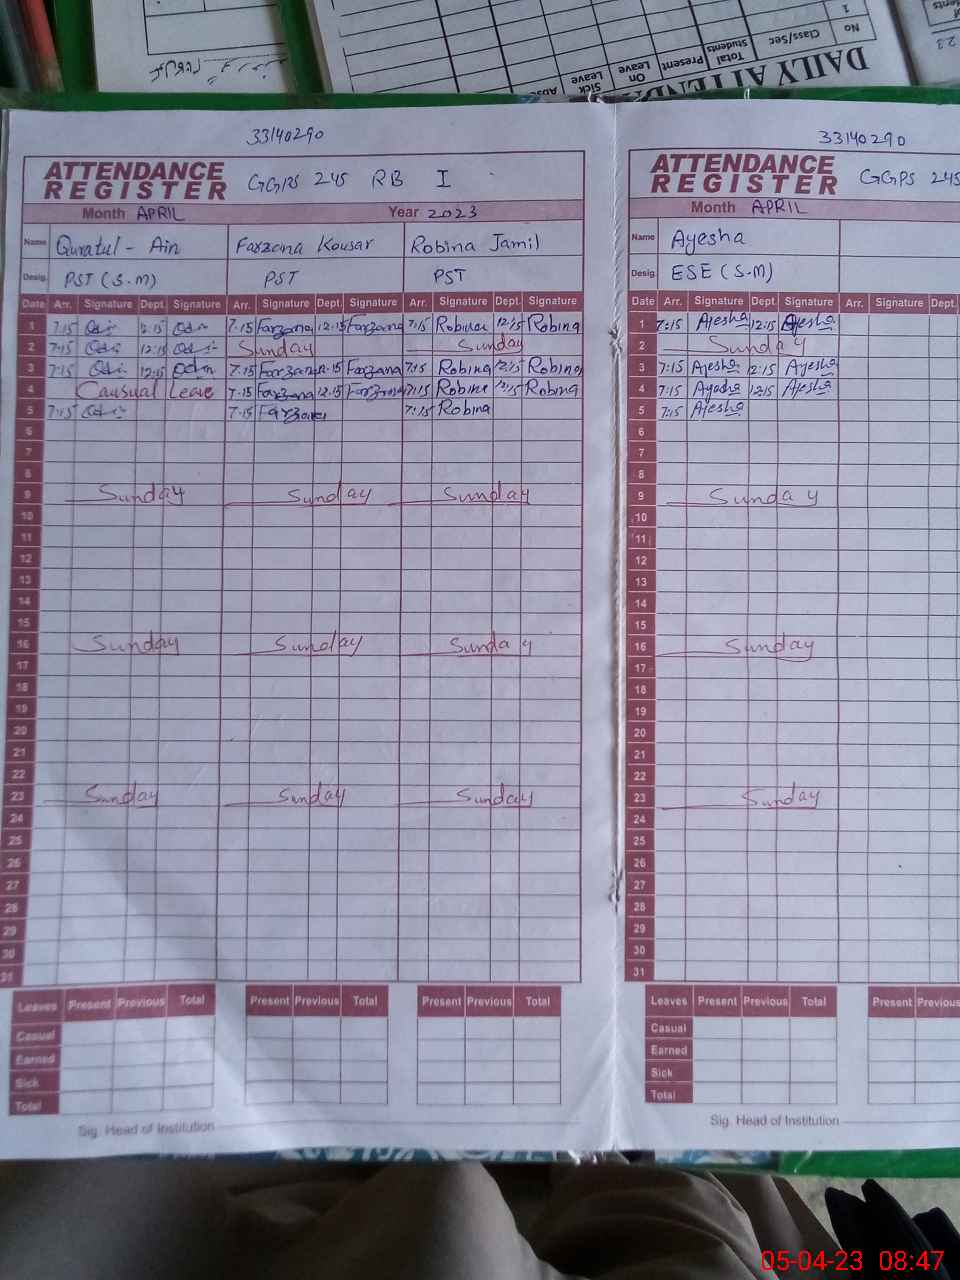 DAILY ATTENDA
No Class/Sec Total Students Present On Leave Sick Leave
1
33140290
ATTENDANCE REGISTER GGPS 245 RB I
Month APRIL Year 2023
Name Quratul-Ain Farzana Kousar Robina Jamil
Desig. PST (S.M) PST PST
Date Arr. Signature Dept. Signature Arr. Signature Dept. Signature Arr. Signature Dept. Signature
1 7:15 12:15 7:15 Farzana 12:15 Farzana 7:15 Robina 12:15 Robina
2 7:15 12:15 Sunday Sunday
3 7:15 12:15 7:15 Farzana 12:15 Farzana 7:15 Robina 12:15 Robina
4 Causual Leave 7:15 Farzana 12:15 Farzana 7:15 Robina 12:15 Robina
5 7:15 7:15 Farzana 7:15 Robina
6
7
8
9 Sunday Sunday Sunday
10
11
12
13
14
15
16 Sunday Sunday Sunday
17
18
19
20
21
22
23 Sunday Sunday Sunday
24
25
26
27
28
29
30
31
Leaves Present Previous Total Present Previous Total Present Previous Total
Casual
Earned
Sick
Total
Sig. Head of Institution
33140290
ATTENDANCE REGISTER GGPS 245
Month APRIL
Name Ayesha
Desig. ESE (S.M)
Date Arr. Signature Dept. Signature Arr. Signature Dept.
1 7:15 Ayesha 12:15 Ayesha
2 Sunday
3 7:15 Ayesha 12:15 Ayesha
4 7:15 Ayesha 12:15 Ayesha
5 7:15 Ayesha
6
7
8
9 Sunday
10
11
12
13
14
15
16 Sunday
17
18
19
20
21
22
23 Sunday
24
25
26
27
28
29
30
31
Leaves Present Previous Total Present Previous
Casual
Earned
Sick
Total
Sig. Head of Institution
05-04-23 08:47